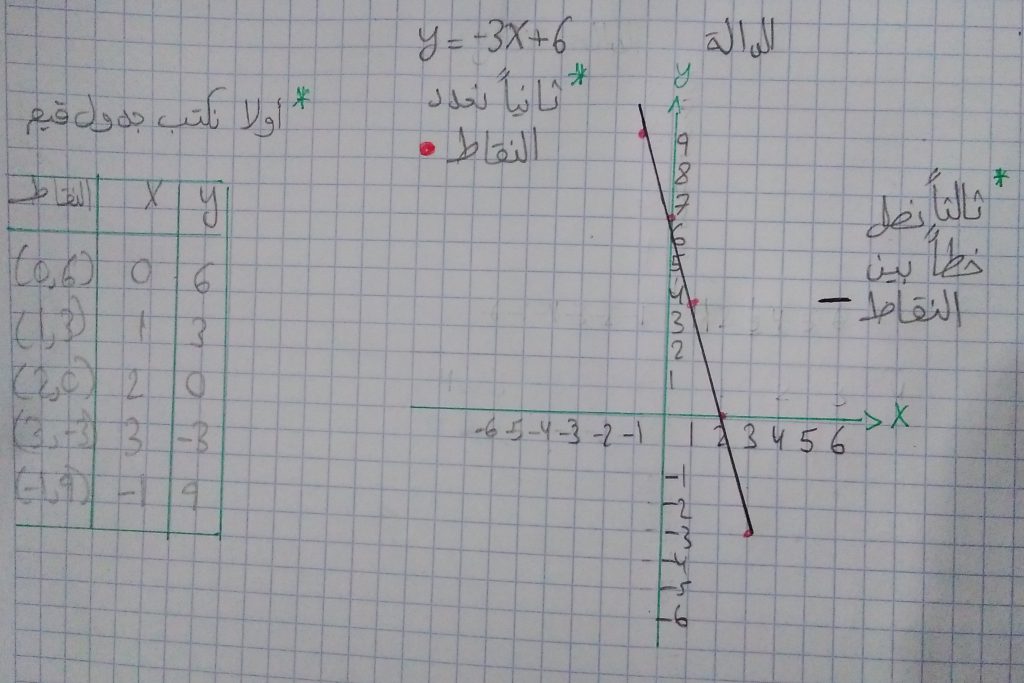 الدالة y = -3X+6
* أولا نكتب جدول قيم
النقاط X y
(0,6) 0 6
(1,3) 1 3
(2,0) 2 0
(3,-3) 3 -3
(-1,9) -1 9
* ثانياً نحدد
النقاط
* ثالثاً نصل
خطاً بين
النقاط
y
9
8
7
6
5
4
3
2
1
-6 -5 -4 -3 -2 -1 1 2 3 4 5 6 X
-1
-2
-3
-4
-5
-6